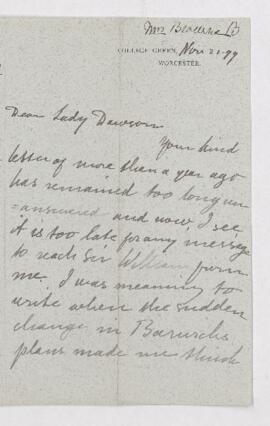 Mrs Browne
COLLEGE GREEN, Nov 21. 99
WORCESTER.
Dear Lady Dawson
Your kind
letter of more than a year ago
has remained too long un
=answered and now I see
it is too late for any message
to reach Sir William from
me. I was meaning to
write when the sudden
change in
plans made me think